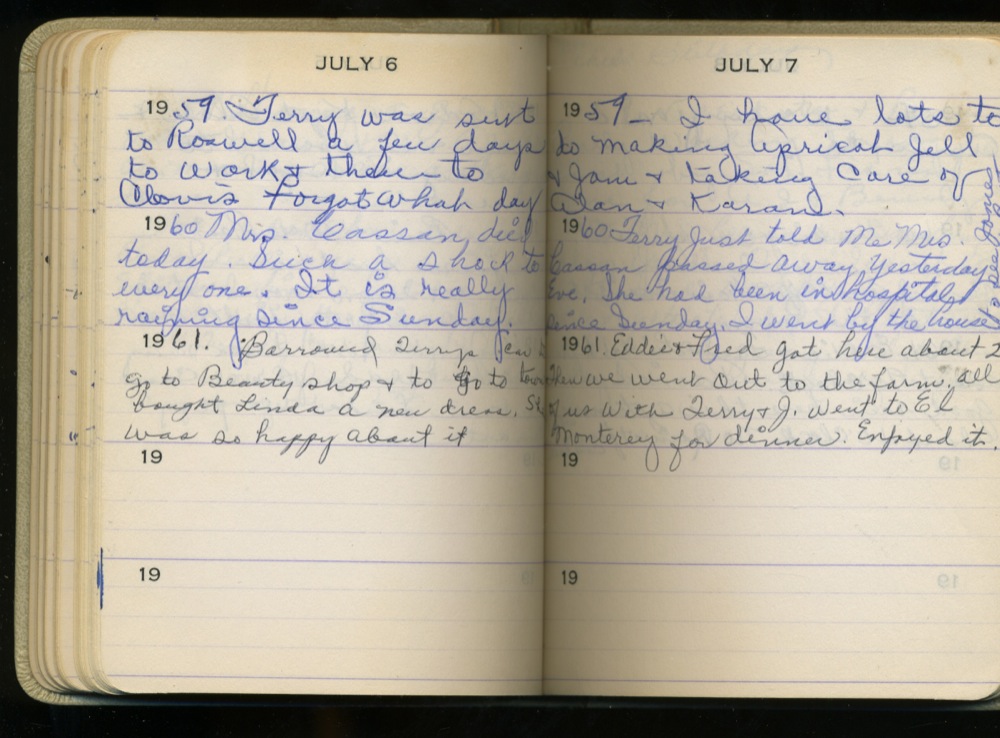 JULY 6
1959. Terry was sent
to Roswell a few days
to work & then to
Clovis Forgot what day
1960 Mrs. Cassan died
today. Such a shock to
every one. It is really
raining since Sunday.
1961. Barrowed Terrys car to
go to Beauty shop & to go to town
bought Linda a new dress.
was so happy about it
19
19
JULY 7
1959 - I have lots to
do making Apricot Jell
& Jam & taking care of
Alan & Karan.
1960 Terry just told me Mrs.
Cassan passed away yesterday
Eve. She had been in hospital
since Sunday. I went by the house
to see Jones
1961. Eddie & Fred got here about 2
then we went out to the farm. all
of us with Terry & J. went to El
Monterey for dinner. Enjoyed it.
19
19